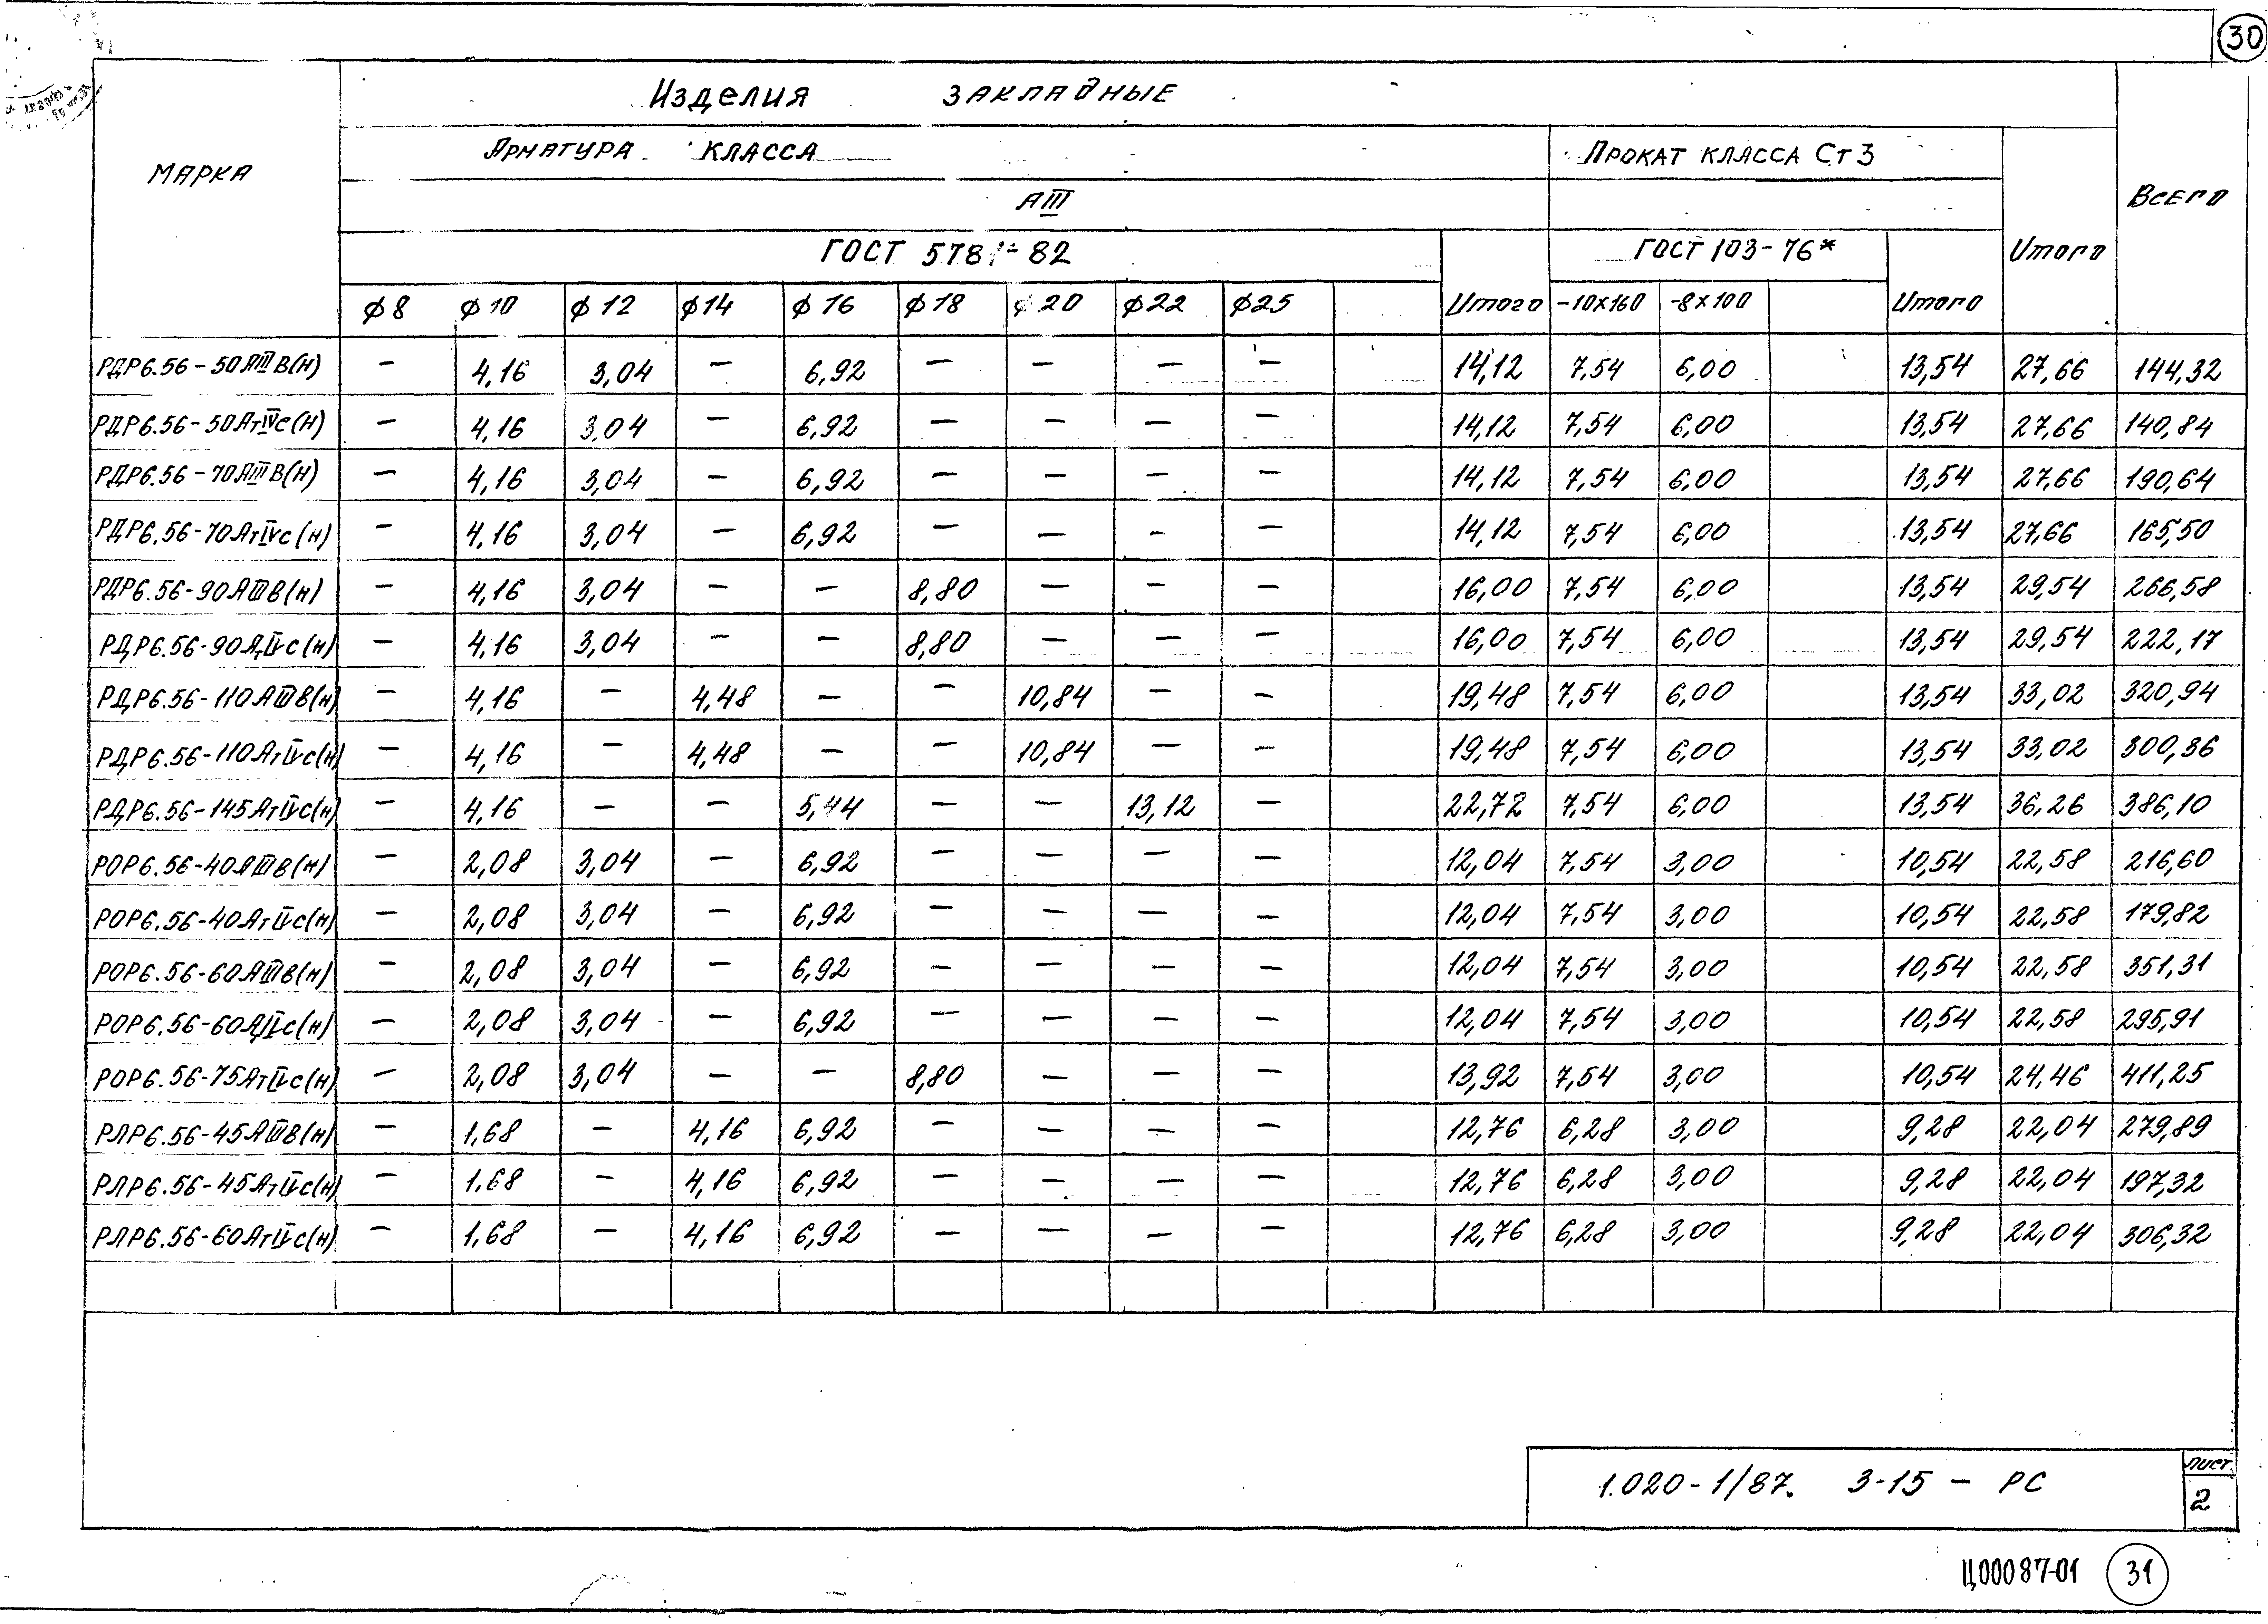 30
МАРКА Изделия закладные Всего
Арматура класса Прокат класса Ст3 Итого
АIII
ГОСТ 5781-82 Итого ГОСТ 103-76* Итого
ф8 ф10 ф12 ф14 ф16 ф18 ф20 ф22 ф25 -10х160 -8х100
РДР6.56-50АIIIВ(н) — 4,16 3,04 — 6,92 — — — — 14,12 7,54 6,00 13,54 27,66 144,32
РДР6.56-50АтIVС(н) — 4,16 3,04 — 6,92 — — — — 14,12 7,54 6,00 13,54 27,66 140,84
РДР6.56-70АIIIВ(н) — 4,16 3,04 — 6,92 — — — — 14,12 7,54 6,00 13,54 27,66 190,64
РДР6.56-70АтIVС(н) — 4,16 3,04 — 6,92 — — — — 14,12 7,54 6,00 13,54 27,66 165,50
РДР6.56-90АIIIВ(н) — 4,16 3,04 — — 8,80 — — — 16,00 7,54 6,00 13,54 29,54 266,58
РДР6.56-90АтIVС(н) — 4,16 3,04 — — 8,80 — — — 16,00 7,54 6,00 13,54 29,54 222,17
РДР6.56-110АIIIВ(н) — 4,16 — 4,48 — — 10,84 — — 19,48 7,54 6,00 13,54 33,02 320,94
РДР6.56-110АтIVС(н) — 4,16 — 4,48 — — 10,84 — — 19,48 7,54 6,00 13,54 33,02 300,36
РДР6.56-145АтIVС(н) — 4,16 — — 5,44 — — 13,12 — 22,72 7,54 6,00 13,54 36,26 386,10
РОР6.56-40АIIIВ(н) — 2,08 3,04 — 6,92 — — — — 12,04 7,54 3,00 10,54 22,58 216,60
РОР6.56-40АтIVС(н) — 2,08 3,04 — 6,92 — — — — 12,04 7,54 3,00 10,54 22,58 179,82
РОР6.56-60АIIIВ(н) — 2,08 3,04 — 6,92 — — — — 12,04 7,54 3,00 10,54 22,58 351,31
РОР6.56-60АтIVС(н) — 2,08 3,04 — 6,92 — — — — 12,04 7,54 3,00 10,54 22,58 295,91
РОР6.56-75АтIVС(н) — 2,08 3,04 — — 8,80 — — — 13,92 7,54 3,00 10,54 24,46 411,25
РЛР6.56-45АIIIВ(н) — 1,68 — 4,16 6,92 — — — — 12,76 6,28 3,00 9,28 22,04 279,89
РЛР6.56-45АтIVС(н) — 1,68 — 4,16 6,92 — — — — 12,76 6,28 3,00 9,28 22,04 197,32
РЛР6.56-60АтIVС(н) — 1,68 — 4,16 6,92 — — — — 12,76 6,28 3,00 9,28 22,04 306,32
1.020-1/87. 3-15 - РС
лист
2
Ц00087-01 31